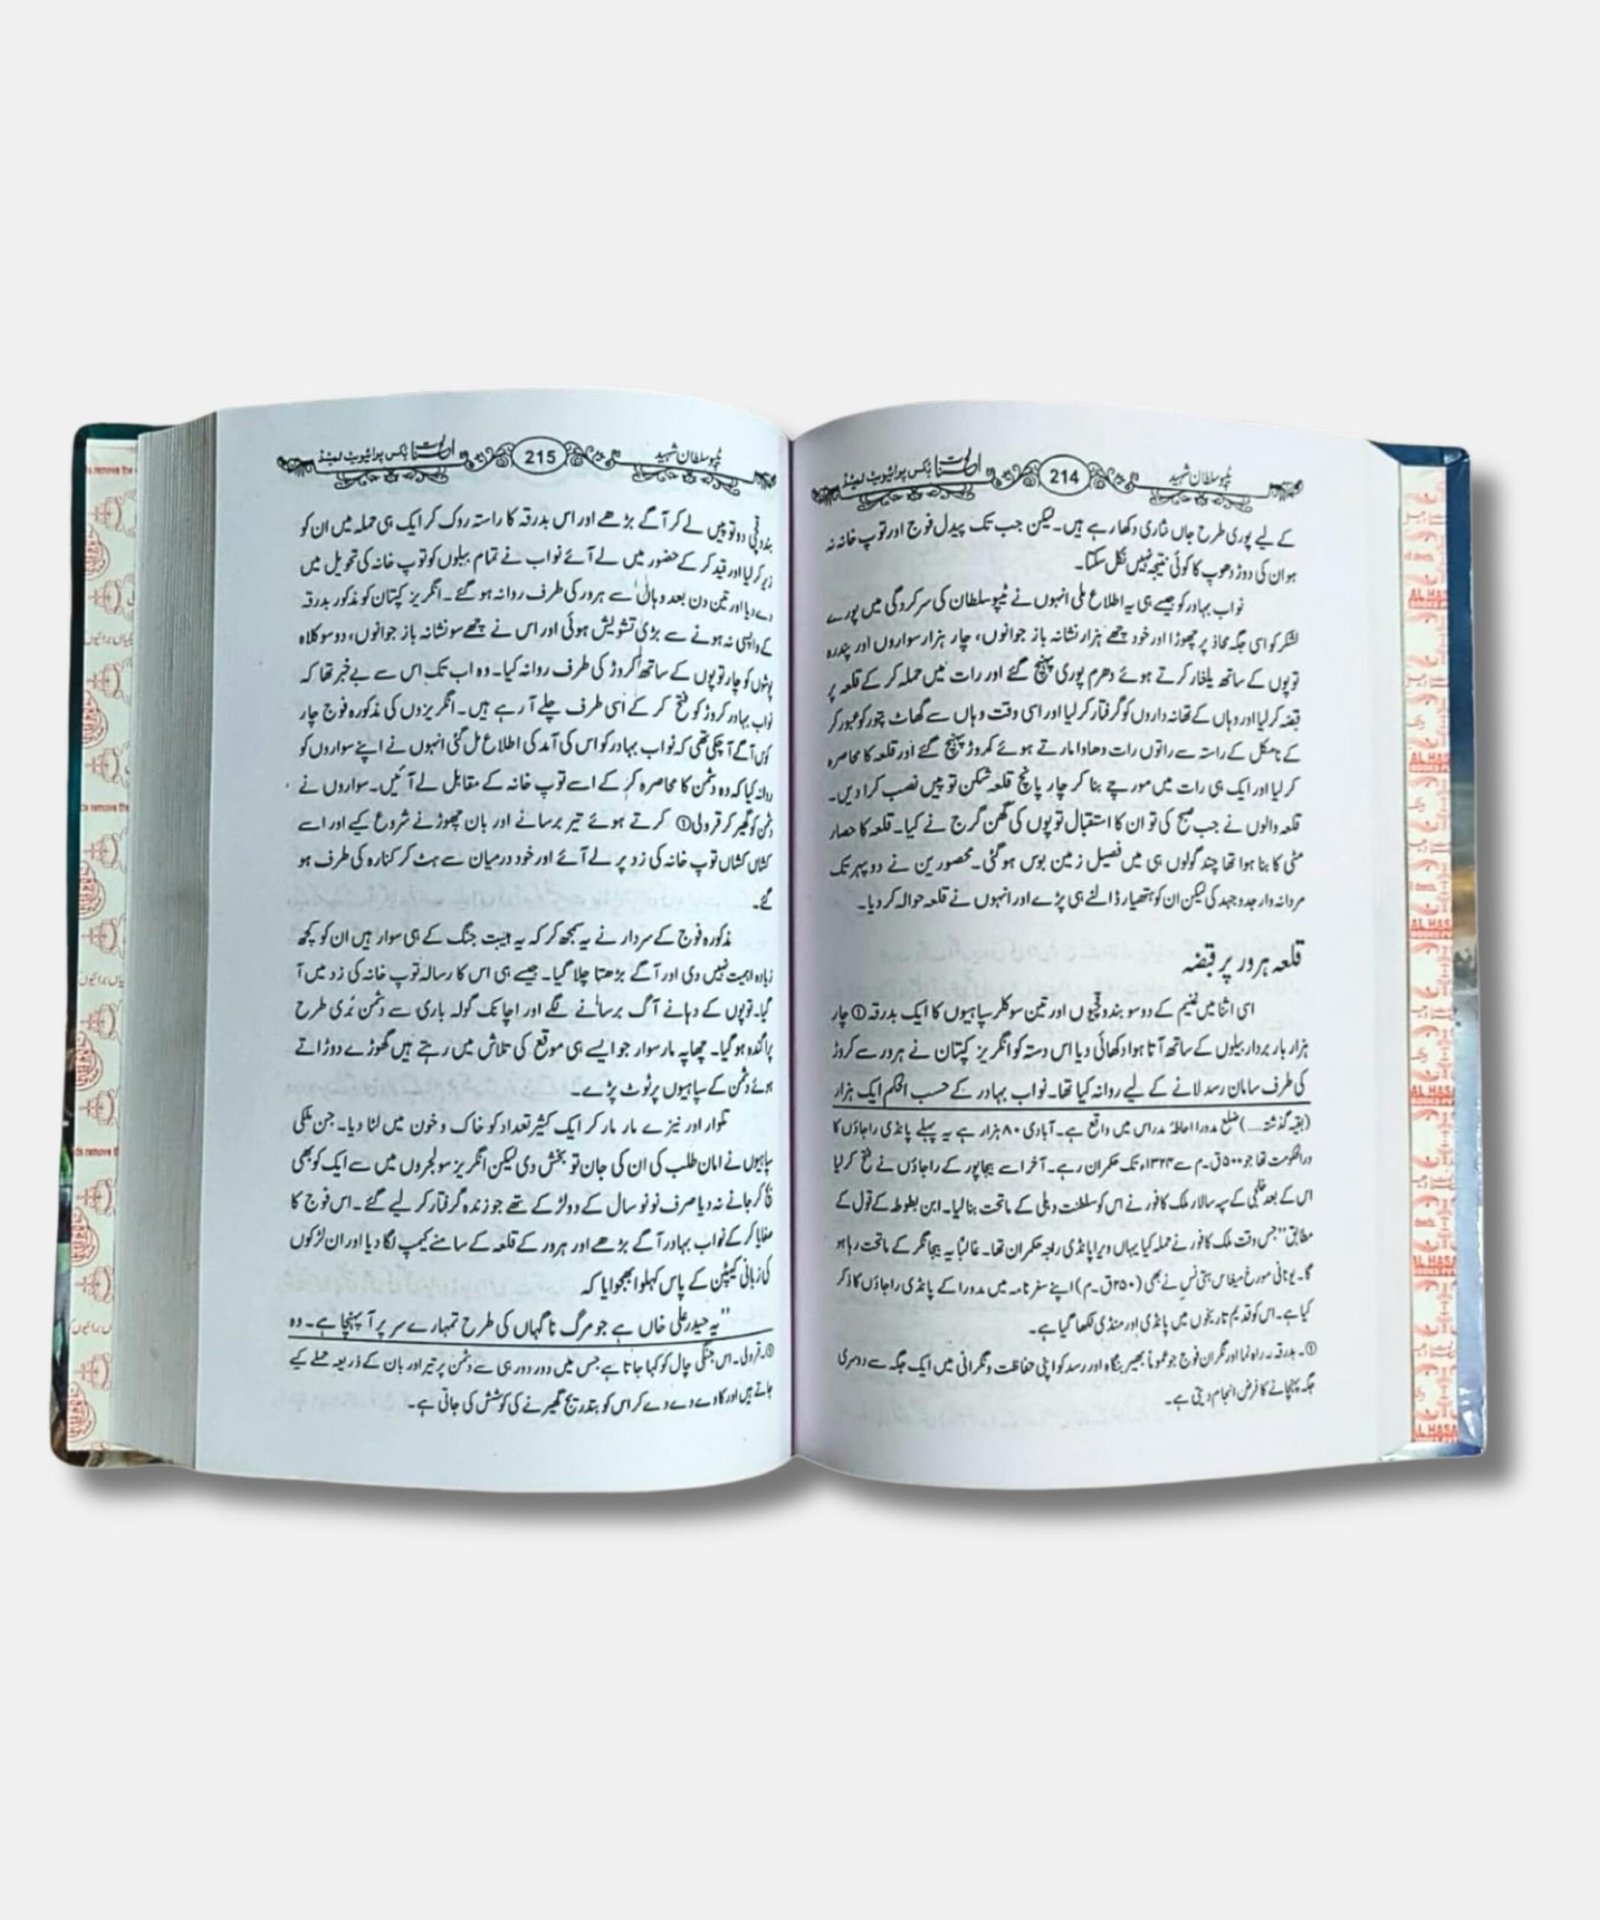 ٹیپو سلطان شہید
214
بکس پرائیویٹ لمیٹڈ
کے لیے پوری طرح جاں نثاری دکھا رہے ہیں۔ لیکن جب تک پیدل فوج اور توپ خانہ نہ
ہو ان کی دوڑ دھوپ کا کوئی نتیجہ نہیں نکل سکتا۔
نواب بہادر کو جیسے ہی یہ اطلاع ملی انہوں نے ٹیپو سلطان کی سرکردگی میں پورے
لشکر کو اسی جگہ محاذ پر چھوڑا اور خود چھے ہزار نشانہ باز جوانوں، چار ہزار سواروں اور پندرہ
توپوں کے ساتھ یلغار کرتے ہوئے دھرم پوری پہنچ گئے اور رات میں حملہ کر کے قلعہ پر
قبضہ کر لیا اور وہاں کے تھانہ داروں کو گرفتار کر لیا اور اسی وقت وہاں سے گھاٹ پتور کو عبور کر
کے نامکل کے راستہ سے راتوں رات دھاوا مارتے ہوئے کمروڑ پہنچ گئے اور قلعہ کا محاصرہ
کر لیا اور ایک ہی رات میں مورچے بنا کر چار پانچ قلعہ شکن توپیں نصب کرا دیں۔
قلعہ والوں نے جب صبح کی تو ان کا استقبال توپوں کی گھن گرج نے کیا۔ قلعہ کا حصار
مٹی کا بنا ہوا تھا چند گولوں ہی میں فصیل زمین بوس ہو گئی۔ محصورین نے دوپہر تک
مردانہ وار جدوجہد کی لیکن ان کو ہتھیار ڈالنے ہی پڑے اور انہوں نے قلعہ حوالہ کر دیا۔
قلعہ ہرور پر قبضہ
اسی اثنا میں غنیم کے دو سو بندوقچیوں اور تین سو کلر سپاہیوں کا ایک بدرقہ ① چار
ہزار بار بردار بیلوں کے ساتھ آتا ہوا دکھائی دیا اس دستہ کو انگریز کپتان نے ہرور سے کروڑ
کی طرف سامان رسد لانے کے لیے روانہ کیا تھا۔ نواب بہادر کے حسب الحکم ایک ہزار
(بقیہ گذشتہ....) ضلع مدورا احاطہ مدراس میں واقع ہے۔ آبادی ۸۰ ہزار ہے یہ پہلے پانڈی راجاؤں کا
دارالحکومت تھا جو ۵۰۰ ق۔م سے ۱۳۲۴ء تک حکمران رہے۔ آخر اسے بیجاپور کے راجاؤں نے فتح کر لیا
اس کے بعد خلجی کے سپہ سالار ملک کافور نے اس کو سلطنت دہلی کے ماتحت بنا لیا۔ ابن بطوطہ کے قول کے
مطابق "جس وقت ملک کافور نے حملہ کیا یہاں ویرا پانڈی راجہ حکمران تھا۔ غالباً یہ بیجانگر کے ماتحت رہا ہو
گا۔ یونانی مورخ میغاس ہتی نس نے بھی (۲۵۰ ق۔م) اپنے سفرنامہ میں مدورا کے پانڈی راجاؤں کا ذکر
کیا ہے۔ اس کو قدیم تاریخوں میں پانڈی اور منڈی لکھا گیا ہے۔
①۔ بدرقہ۔ راہ نما اور نگران فوج جو عموماً بھیر بنگاہ اور رسد کو اپنی حفاظت و نگرانی میں ایک جگہ سے دوسری
جگہ پہنچانے کا فرض انجام دیتی ہے۔
ٹیپو سلطان شہید
215
بکس پرائیویٹ لمیٹڈ
بندوقچی دو توپیں لے کر آگے بڑھے اور اس بدرقہ کا راستہ روک کر ایک ہی حملہ میں ان کو
زیر کر لیا اور قید کر کے حضور میں لے آئے نواب نے تمام بیلوں کو توپ خانہ کی تحویل میں
دے دیا اور تین دن بعد وہاں سے ہرور کی طرف روانہ ہو گئے۔ انگریز کپتان کو مذکور بدرقہ
کے واپسی نہ ہونے سے بڑی تشویش ہوئی اور اس نے چھے سو نشانہ باز جوانوں، دو سو کلاہ
پوشوں کو چار توپوں کے ساتھ کروڑ کی طرف روانہ کیا۔ وہ اب تک اس سے بے خبر تھا کہ
نواب بہادر کروڑ کو فتح کر کے اسی طرف چلے آ رہے ہیں۔ انگریزوں کی مذکورہ فوج چار
کوس آگے آ چکی تھی کہ نواب بہادر کو اس کی آمد کی اطلاع مل گئی انہوں نے اپنے سواروں کو
روانہ کیا کہ وہ دشمن کا محاصرہ کر کے اسے توپ خانہ کے مقابل لے آئیں۔ سواروں نے
دشمن کو گھیر کر قرولی ① کرتے ہوئے تیر برسانے اور بان چھوڑنے شروع کیے اور اسے
کشاں کشاں توپ خانہ کی زد پر لے آئے اور خود درمیان سے ہٹ کر کنارہ کی طرف ہو
گئے۔
مذکورہ فوج کے سردار نے یہ سمجھ کر کہ یہ ہیبت جنگ کے ہی سوار ہیں ان کو کچھ
زیادہ اہمیت نہیں دی اور آگے بڑھتا چلا گیا۔ جیسے ہی اس کا رسالہ توپ خانہ کی زد میں آ
گیا۔ توپوں کے دہانے آگ برسانے لگے اور اچانک گولہ باری سے دشمن بُری طرح
پراگندہ ہو گیا۔ چھاپہ مار سوار جو ایسے ہی موقع کی تلاش میں رہتے ہیں گھوڑے دوڑاتے
ہوئے دشمن کے سپاہیوں پر ٹوٹ پڑے۔
تلوار اور نیزے مار مار کر ایک کثیر تعداد کو خاک و خون میں لٹا دیا۔ جن ملکی
سپاہیوں نے امان طلب کی ان کی جان تو بخش دی لیکن انگریز سولجروں میں سے ایک کو بھی
بچ کر جانے نہ دیا صرف نو نو سال کے دو لڑکے تھے جو زندہ گرفتار کر لیے گئے۔ اس فوج کا
صفایا کر کے نواب بہادر آگے بڑھے اور ہرور کے قلعہ کے سامنے کیمپ لگا دیا اور ان لڑکوں
کی زبانی کیپٹن کے پاس کہلوا بھجوایا کہ
"یہ حیدر علی خاں ہے جو مرگ ناگہاں کی طرح تمہارے سر پر آ پہنچا ہے۔ وہ
①۔ قرولی۔ اس جنگی چال کو کہا جاتا ہے جس میں دور دور ہی سے دشمن پر تیر اور بان کے ذریعہ حملے کیے
جاتے ہیں اور کاوے دے دے کر اس کو بتدریج گھیرنے کی کوشش کی جاتی ہے۔